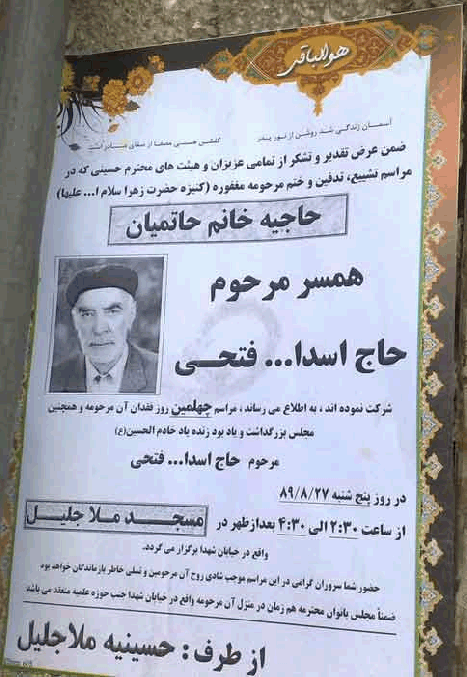 هوالباقی
آسمان زندگی شد روشن از نور پدر
گلشن هستی مصفا از صفای مادر است
ضمن عرض تقدیر و تشکر از تمامی عزیزان و هیئت های محترم حسینی که در
مراسم تشییع، تدفین و ختم مرحومه مغفوره (کنیزه حضرت زهرا سلام ا... علیها)
حاجیه خانم حاتمیان
همسر مرحوم
حاج اسدا... فتحی
شرکت نموده اند ، به اطلاع می رساند ، مراسم چهلمین روز فقدان آن مرحومه و همچنین
مجلس بزرگداشت و یاد بود زنده یاد خادم الحسین(ع)
مرحوم حاج اسدا... فتحی
در روز پنج شنبه ۸۹/۸/۲۷
از ساعت ۲:۳۰ الی ۴:۳۰ بعدازظهر در مسجد ملا جلیل
واقع در خیابان شهدا برگزار می گردد.
حضور شما سروران گرامی در این مراسم موجب شادی روح آن مرحومین و تسلی خاطر بازماندگان خواهد بود
ضمناً مجلس بانوان محترمه هم زمان در منزل آن مرحومه واقع در خیابان شهدا جنب حوزه علمیه منعقد می باشد
از طرف : حسینیه ملاجلیل